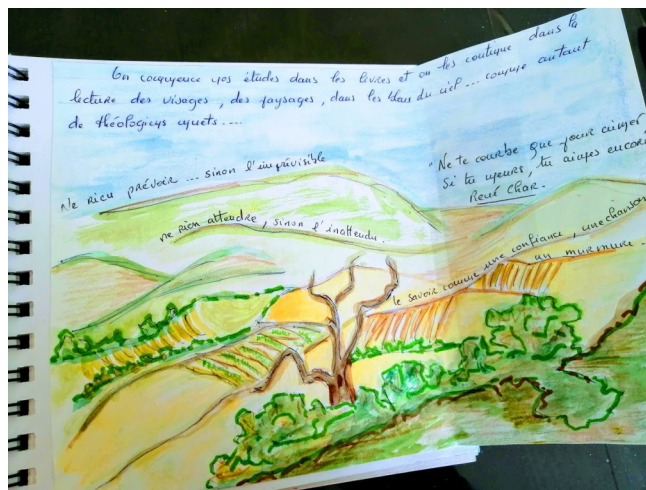 On commence nos études dans les livres et on les continue dans la
lecture des visages, des paysages, dans les bleus du ciel... comme autant
de théologiens muets....
Ne rien prévoir ... sinon l'imprévisible
ne rien attendre, sinon l'inattendu.
"Ne te courbe que pour aimer
Si tu meurs, tu aimes encore
René Char.
le savoir comme une confiance, une chanson
un murmure.